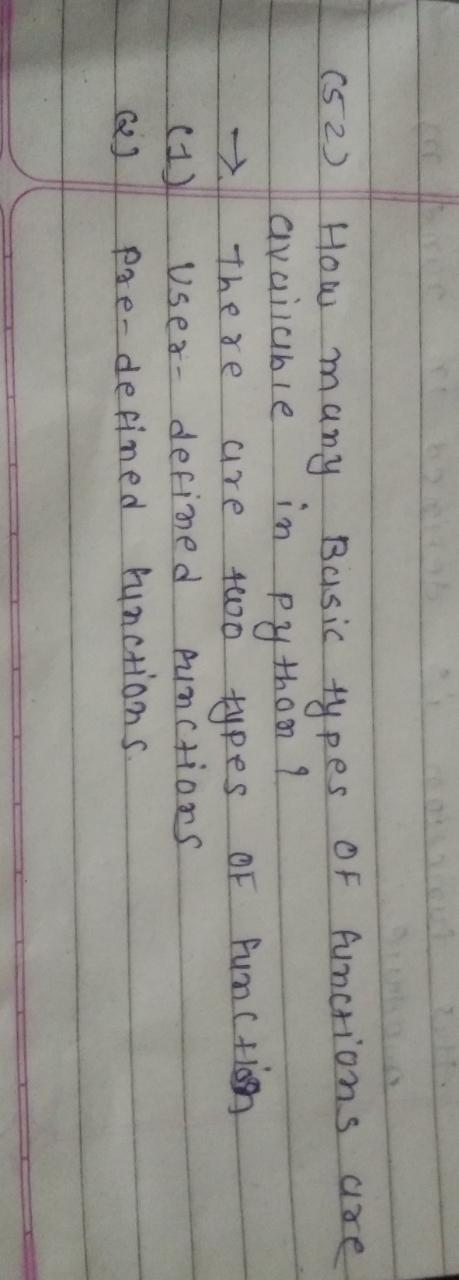 (52) How many Basic types OF functions are
available in python?
→ There are two types OF function
(1) User-defined functions
(2) Pre-defined functions.